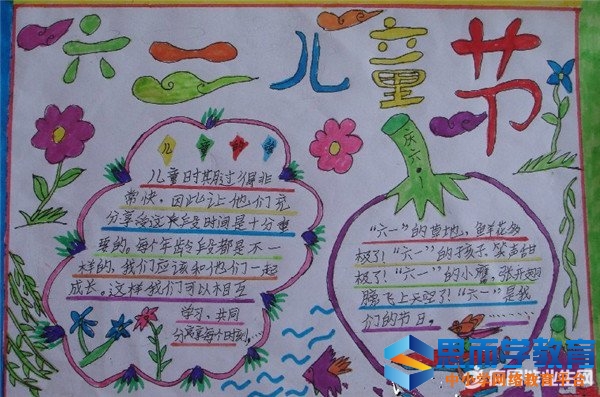 六一儿童节
儿童时期过得非
常快，因此让他们充
分享受这段时间是十分重
要的，每个年龄段都是不一
样的，我们应该和他们一起
成长。这样我们可以相互
学习、共同
分享每个时刻……
庆六一
"六一"的草地，鲜花多
极了！"六一"的孩子，笑声甜
极了！"六一"的小鹰，张开翅
膀飞上天空了！"六一"是我
们的节日。
思而学教育
中小学网络教育平台